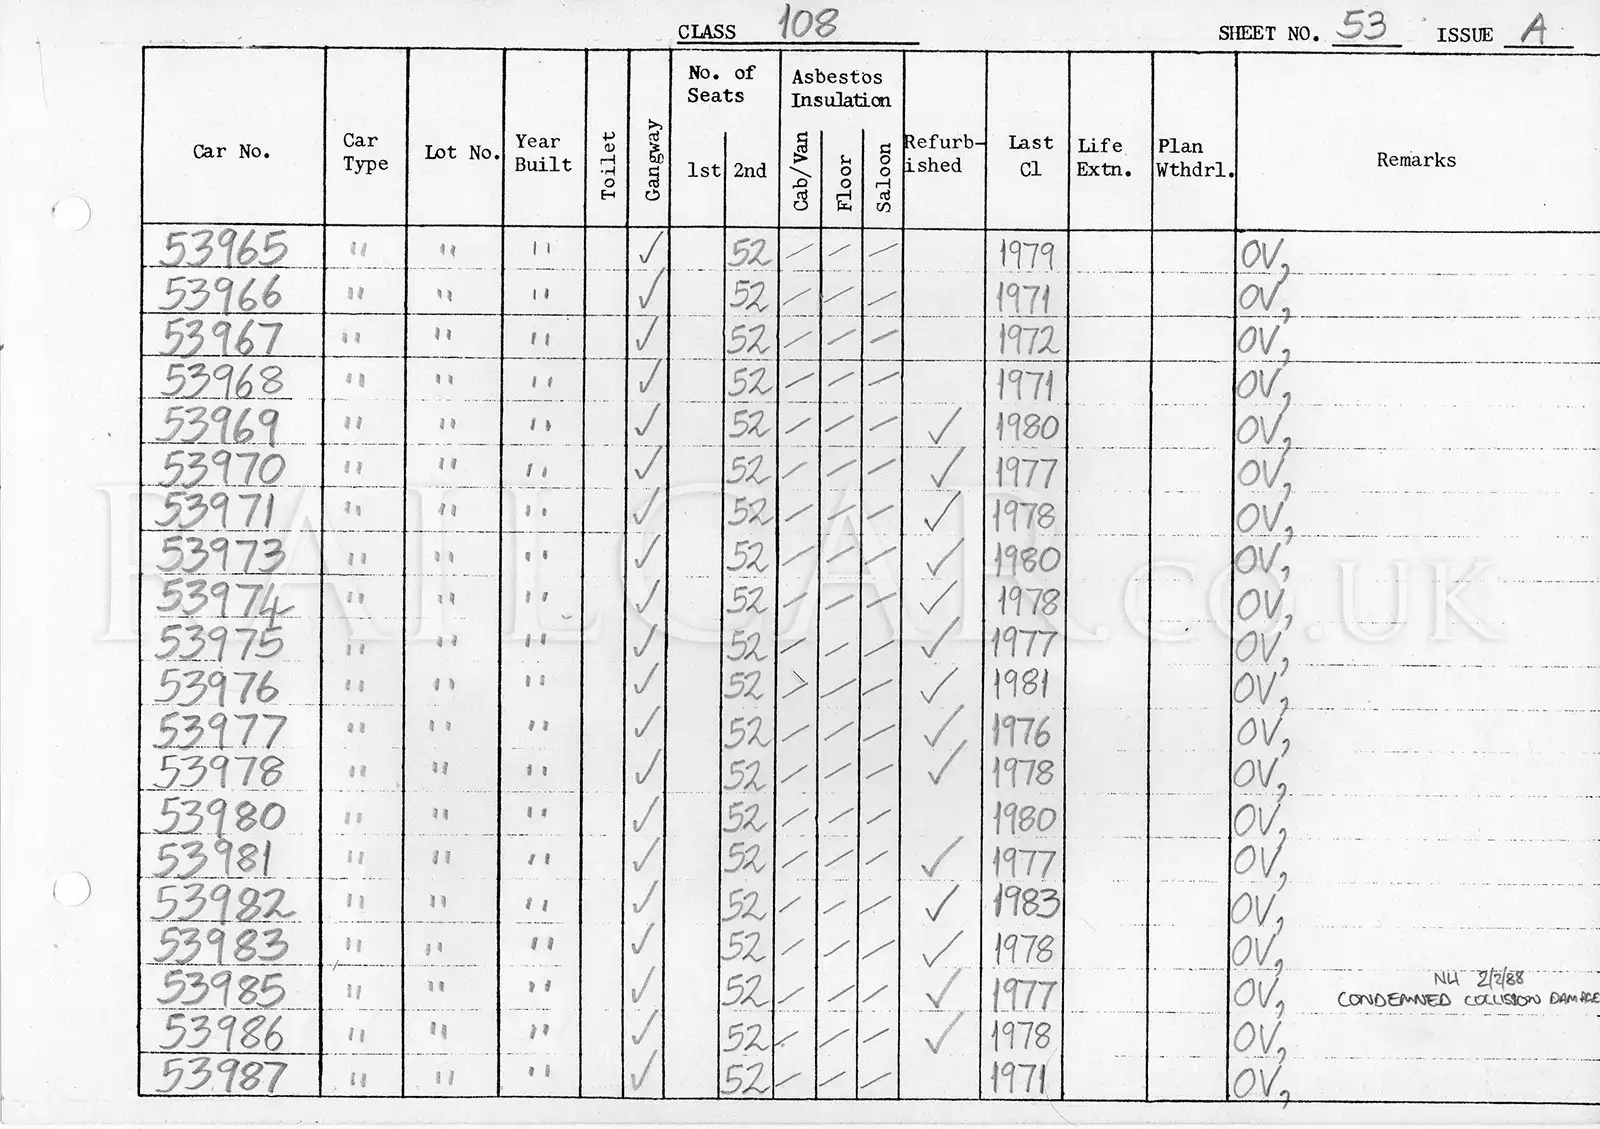 CLASS 108 SHEET NO. 53 ISSUE A
Car No. Car Type Lot No. Year Built Toilet Gangway No. of Seats 1st 2nd Asbestos Insulation Cab/Van Floor Saloon Refurb-ished Last Cl Life Extn. Plan Wthdrl. Remarks
53965 " " " ✓ 52 / / / 1979 OV,
53966 " " " ✓ 52 / / / 1971 OV,
53967 " " " ✓ 52 / / / 1972 OV,
53968 " " " ✓ 52 / / / 1971 OV,
53969 " " " ✓ 52 / / / ✓ 1980 OV,
53970 " " " ✓ 52 / / / ✓ 1977 OV,
53971 " " " ✓ 52 / / / ✓ 1978 OV,
53973 " " " ✓ 52 / / / ✓ 1980 OV,
53974 " " " ✓ 52 / / / ✓ 1978 OV,
53975 " " " ✓ 52 / / / ✓ 1977 OV,
53976 " " " ✓ 52 / / / ✓ 1981 OV,
53977 " " " ✓ 52 / / / ✓ 1976 OV,
53978 " " " ✓ 52 / / / ✓ 1978 OV,
53980 " " " ✓ 52 / / / 1980 OV,
53981 " " " ✓ 52 / / / ✓ 1977 OV,
53982 " " " ✓ 52 / / / ✓ 1983 OV,
53983 " " " ✓ 52 / / / ✓ 1978 OV,
53985 " " " ✓ 52 / / / ✓ 1977 OV, NH 2/2/88
CONDEMNED COLLISION DAMAGE
53986 " " " ✓ 52 / / / ✓ 1978 OV,
53987 " " " ✓ 52 / / / 1971 OV,
RAILCAR.CO.UK